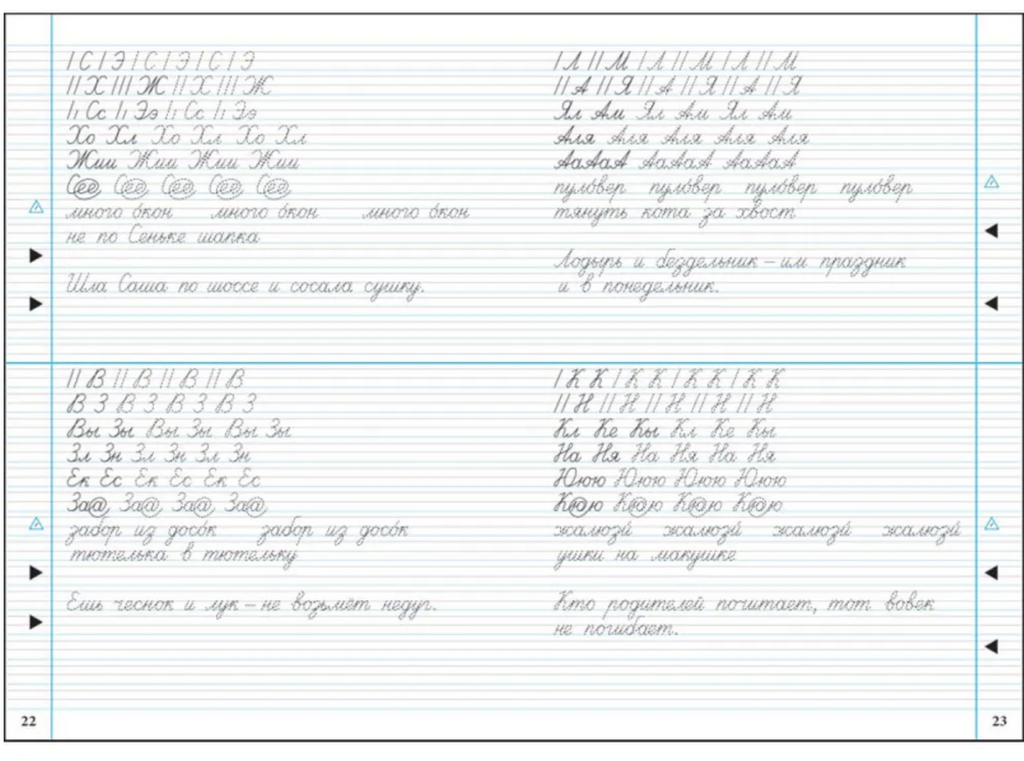 I С I Э I С I Э I С I Э
II Х III Ж II Х III Ж
I ı Сс I ı Ээ I ı Сс I ı Ээ
Хо Хл Хо Хл Хо Хл
Жии Жии Жии Жии
много о́кон много о́кон много о́кон
не по Сеньке шапка
Шла Саша по шоссе и сосала сушку.
I Л II М I Л II М I Л II М
II А II Я II А II Я II А II Я
Ял Ам Ял Ам Ял Ам
Аля Аля Аля Аля Аля
АаАаА АаАаА АаАаА
пуло́вер пуло́вер пуло́вер пуло́вер
тянуть кота за хвост
Лодырь и бездельник – им праздник
и в понедельник.
II В II В II В II В
В З В З В З В З
Вы Зы Вы Зы Вы Зы
Зл Зн Зл Зн Зл Зн
Ек Ес Ек Ес Ек Ес
За@ За@ За@ За@
забор из досо́к забор из досо́к
тютелька в тютельку
Ешь чеснок и лук – не возьмёт недуг.
22
I К К I К К I К К I К К
II Н II Н II Н II Н II Н
Кл Ке Кы Кл Ке Кы
На Ня На Ня На Ня
Юююю Юююю Юююю Юююю
жалюзи́ жалюзи́ жалюзи́ жалюзи́
ушки на макушке
Кто родителей почитает, тот вовек
не погибает.
23